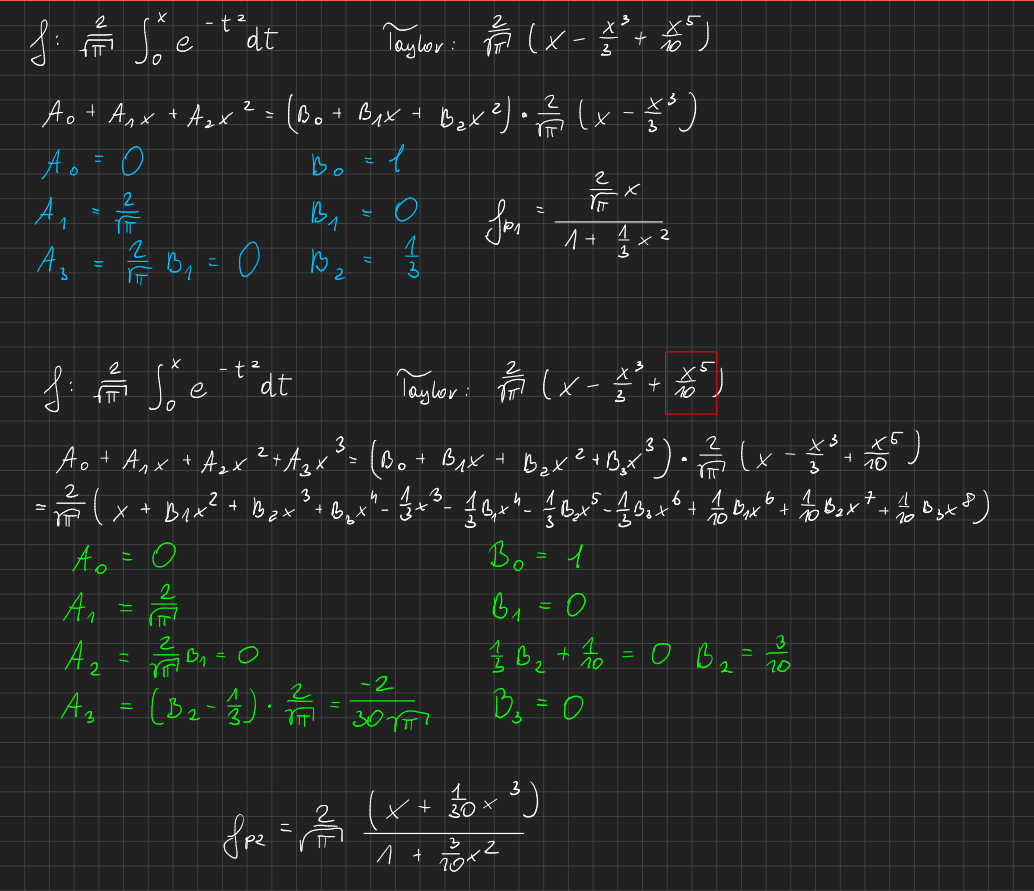 f: 2/√π ∫₀ˣ e^(-t²) dt Taylor: 2/√π (x - x³/3 + x⁵/10)
A₀ + A₁x + A₂x² = (B₀ + B₁x + B₂x²) · 2/√π (x - x³/3)
A₀ = 0 B₀ = 1
A₁ = 2/√π B₁ = 0 f_p1 = (2/√π x)/(1 + 1/3 x²)
A₃ = 2/√π B₁ = 0 B₂ = 1/3
f: 2/√π ∫₀ˣ e^(-t²) dt Taylor: 2/√π (x - x³/3 + x⁵/10)
A₀ + A₁x + A₂x² + A₃x³ = (B₀ + B₁x + B₂x² + B₃x³) · 2/√π (x - x³/3 + x⁵/10)
= 2/√π (x + B₁x² + B₂x³ + B₃x⁴ - 1/3 x³ - 1/3 B₁x⁴ - 1/3 B₂x⁵ - 1/3 B₃x⁶ + 1/10 B₁x⁶ + 1/10 B₂x⁷ + 1/10 B₃x⁸)
A₀ = 0 B₀ = 1
A₁ = 2/√π B₁ = 0
A₂ = 2/√π B₁ = 0 1/3 B₂ + 1/10 = 0 B₂ = 3/10
A₃ = (B₂ - 1/3) · 2/√π = -2/(30√π) B₃ = 0
f_p2 = 2/√π (x + 1/30 x³)/(1 + 3/10 x²)